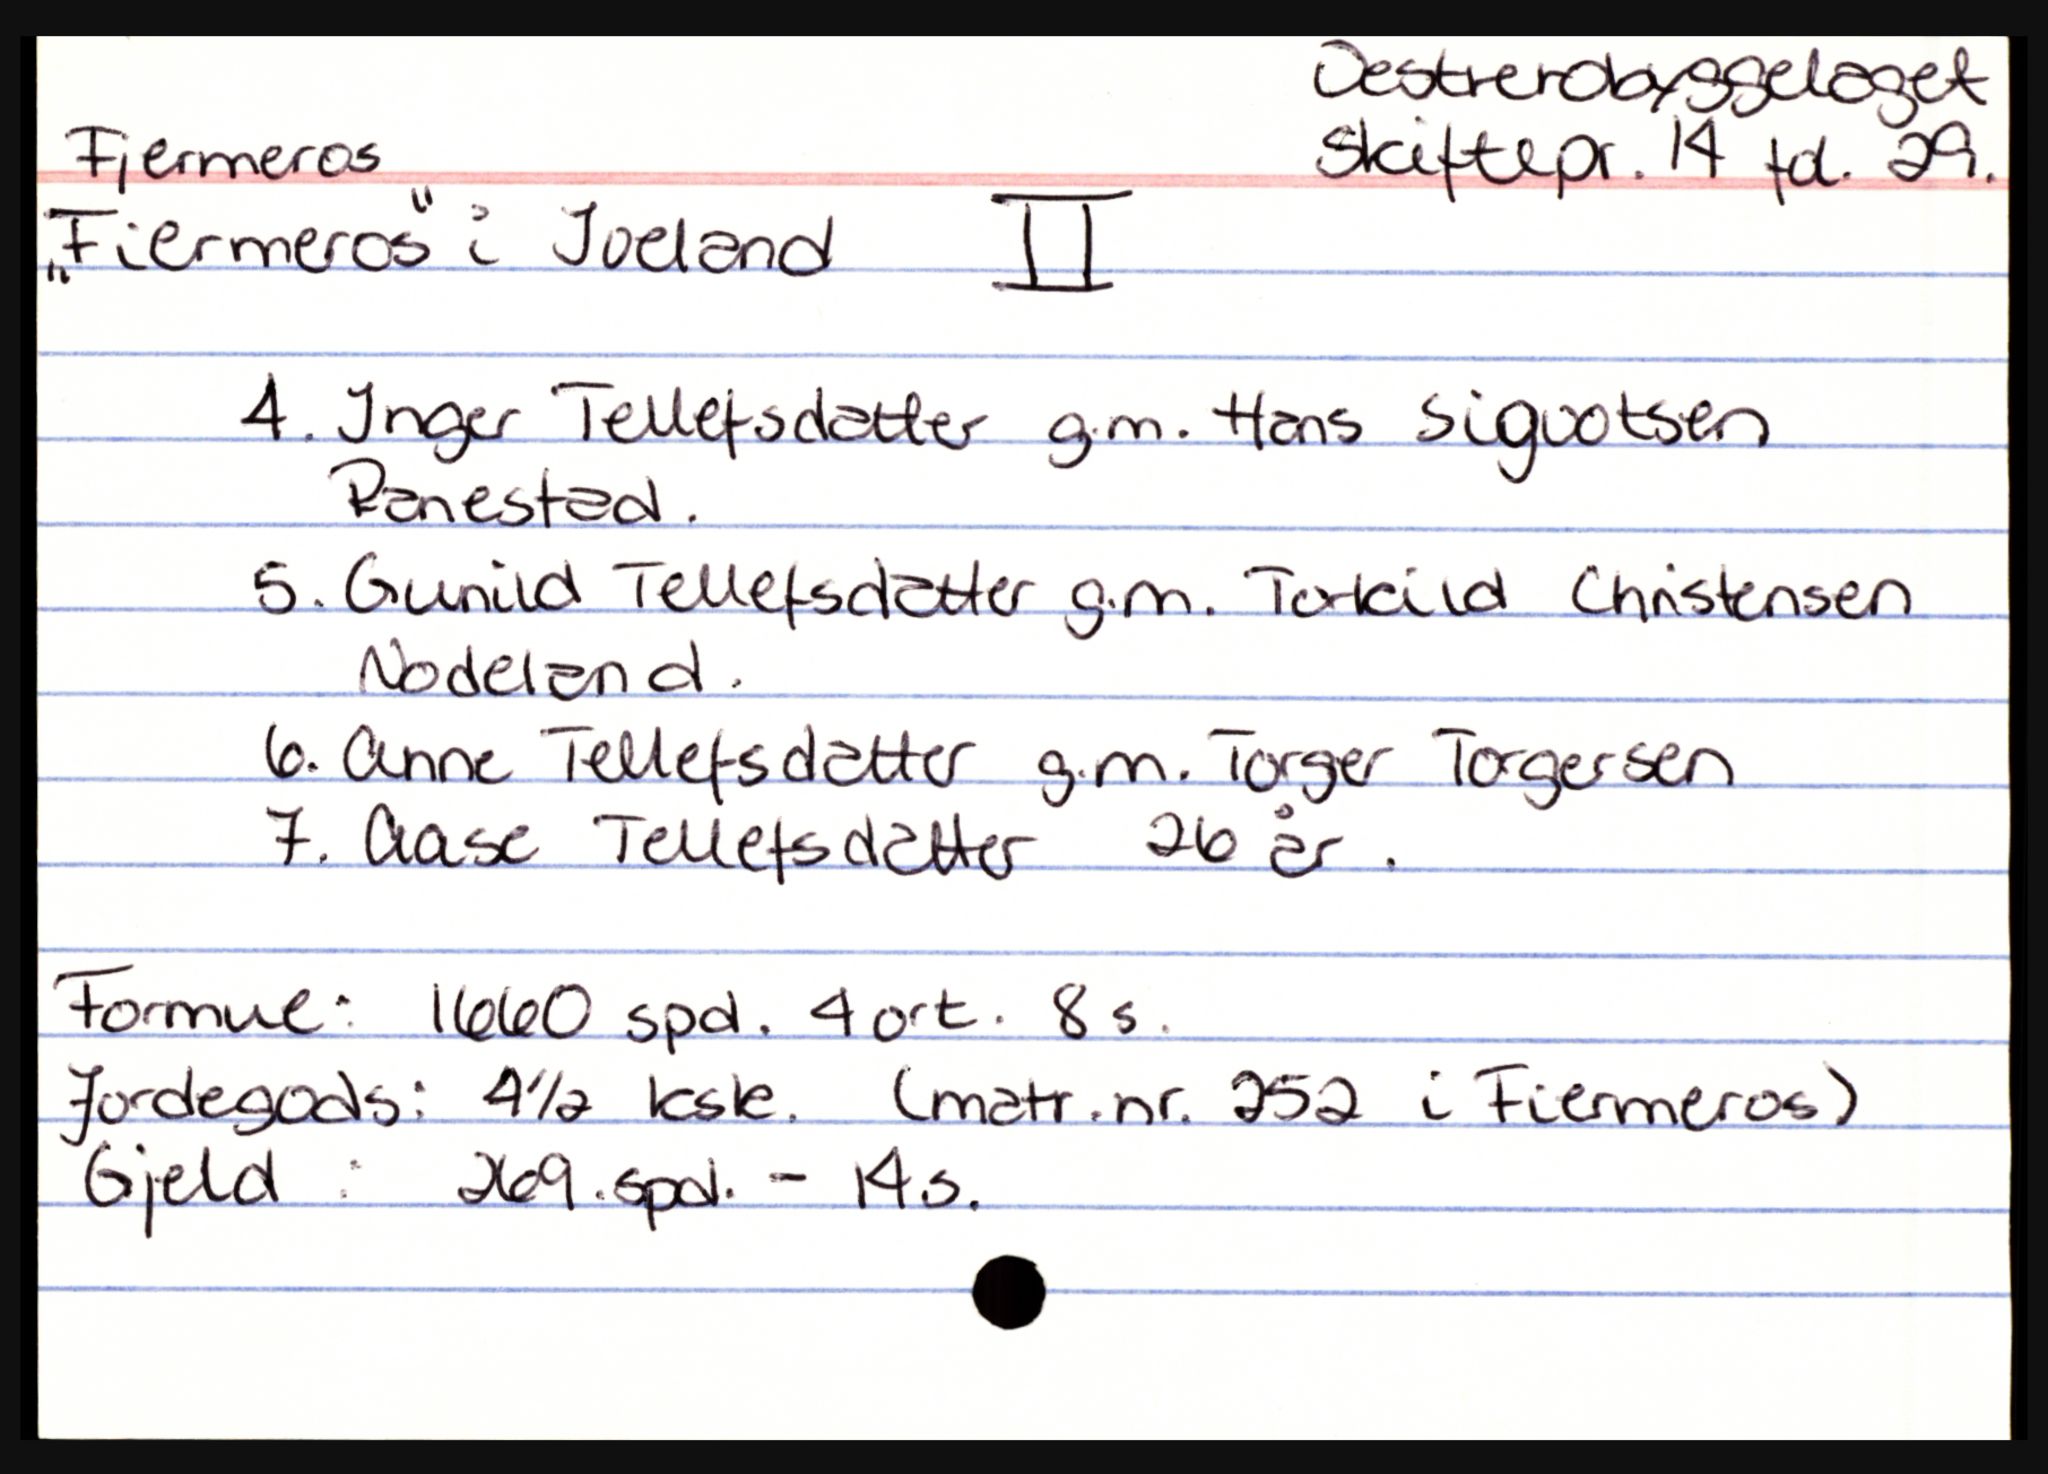 Oestrerobyggelaget
Fjermeros Skiftepr. 14 fol. 29.
„Fiermeros" i Ioeland II
4. Inger Tellefsdatter g.m. Hans Sigvotsen
Ranestad.
5. Gunild Tellefsdatter g.m. Torkild Christensen
Nodeland.
6. Anne Tellefsdatter g.m. Torger Torgersen
7. Aase Tellefsdatter 26 år.
Formue: 1660 spd. 4 ort. 8 s.
Jordegods: 4 1/2 ksk. (matr.nr. 252 i Fiermeros)
Gjeld : 269. spd. - 14 s.